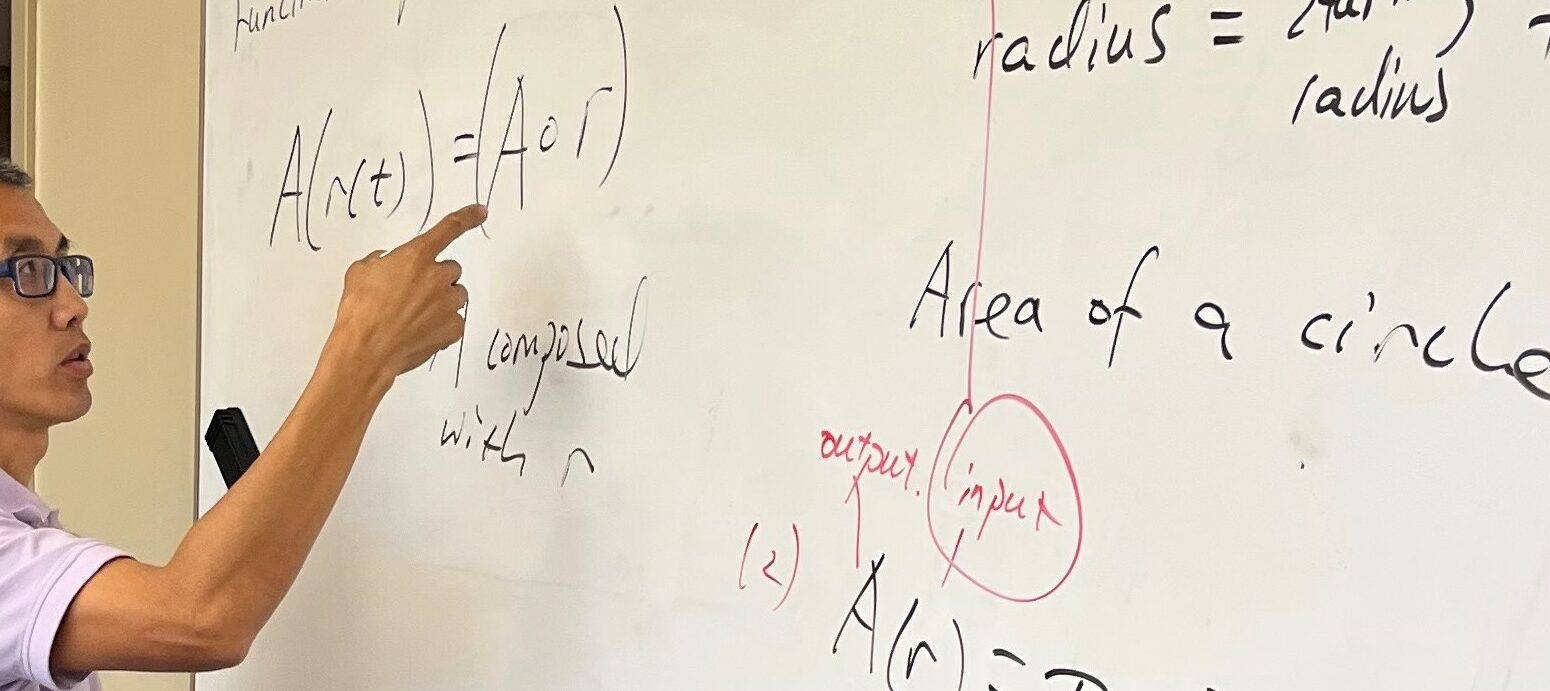 A(r(t)) = (A ∘ r)
A composed
with r
radius =
radius
Area of a circle
output.
input
(2)
A(r) =